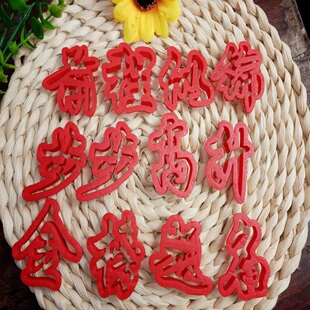 前程似锦
步步高升
金榜题名